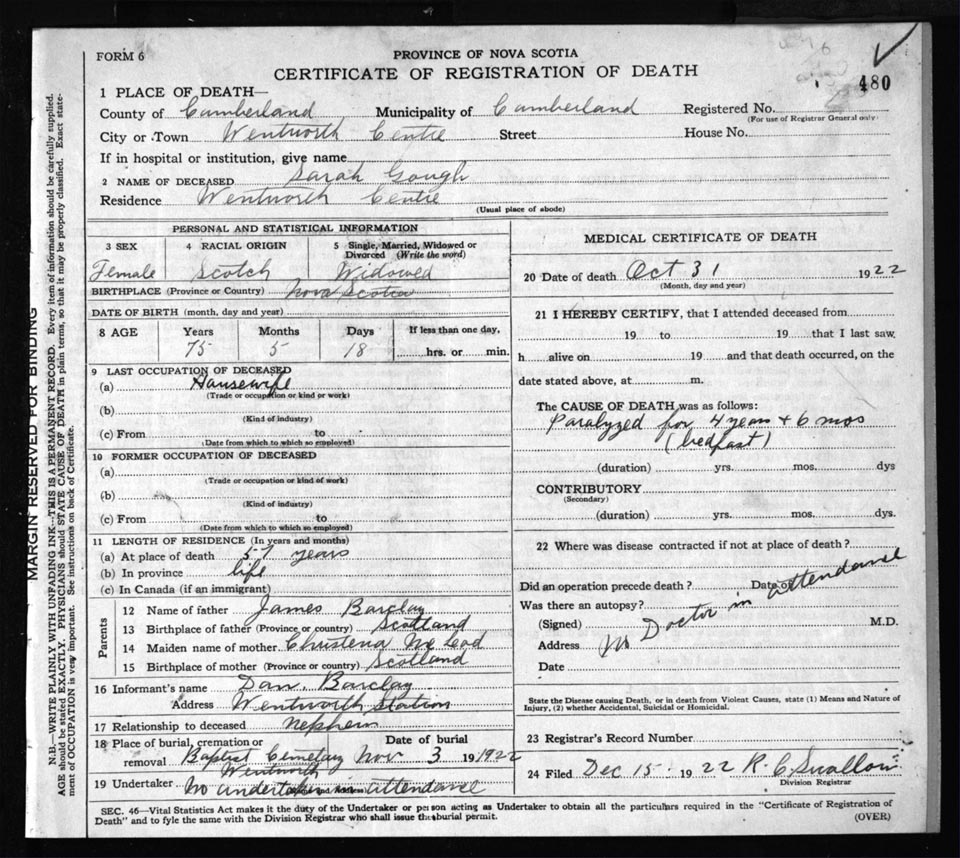 FORM 6
PROVINCE OF NOVA SCOTIA
CERTIFICATE OF REGISTRATION OF DEATH
480
1 PLACE OF DEATH—
County of Cumberland Municipality of Cumberland Registered No.
(For use of Registrar General only)
City or Town Wentworth Centre Street House No.
If in hospital or institution, give name
2 NAME OF DECEASED Sarah Gough
Residence Wentworth Centre
(Usual place of abode)
PERSONAL AND STATISTICAL INFORMATION
3 SEX 4 RACIAL ORIGIN 5 Single, Married, Widowed or Divorced (Write the word)
Female Scotch Widowed
BIRTHPLACE (Province or Country) Nova Scotia
DATE OF BIRTH (month, day and year)
8 AGE Years Months Days If less than one day,
75 5 18 hrs. or min.
9 LAST OCCUPATION OF DECEASED
(a) Housewife
(Trade or occupation or kind or work)
(b)
(Kind of industry)
(c) From to
(Date from which to which so employed)
10 FORMER OCCUPATION OF DECEASED
(a)
(Trade or occupation or kind of work)
(b)
(Kind of industry)
(c) From to
(Date from which to which so employed)
11 LENGTH OF RESIDENCE (In years and months)
(a) At place of death 57 years
(b) In province life
(c) In Canada (if an immigrant)
Parents
12 Name of father James Barclay
13 Birthplace of father (Province or country) Scotland
14 Maiden name of mother Christena McLeod
15 Birthplace of mother (Province or country) Scotland
16 Informant's name Dan. Barclay
Address Wentworth Station
17 Relationship to deceased Nephew
18 Place of burial, cremation or removal Date of burial
Baptist Cemetary Nov 3 19 1922
Wentworth
19 Undertaker No undertaker in attendance
MEDICAL CERTIFICATE OF DEATH
20 Date of death Oct 31 1922
(Month, day and year)
21 I HEREBY CERTIFY, that I attended deceased from
19 to 19 that I last saw
h alive on 19 and that death occurred, on the
date stated above, at m.
The CAUSE OF DEATH was as follows:
Paralyzed for 4 years + 6 mos
(bedfast)
(duration) yrs. mos. dys
CONTRIBUTORY
(Secondary)
(duration) yrs. mos. dys.
22 Where was disease contracted if not at place of death?
Did an operation precede death? Date of
Was there an autopsy?
(Signed) M.D.
No Doctor in attendance
Address
Date
State the Disease causing Death, or in death from Violent Causes, state (1) Means and Nature of
Injury, (2) whether Accidental, Suicidal or Homicidal.
23 Registrar's Record Number
24 Filed Dec 15 1922 R. C. Swallow
Division Registrar
SEC. 46—Vital Statistics Act makes it the duty of the Undertaker or person acting as Undertaker to obtain all the particulars required in the "Certificate of Registration of
Death" and to fyle the same with the Division Registrar who shall issue the burial permit.
(OVER)
MARGIN RESERVED FOR BINDING
N.B.—WRITE PLAINLY WITH UNFADING INK—THIS IS A PERMANENT RECORD. Every item of information should be carefully supplied.
AGE should be stated EXACTLY. PHYSICIANS should STATE CAUSE OF DEATH in plain terms, so that it may be properly classified. Exact state-
ment of OCCUPATION is very important. See instructions on back of Certificate.